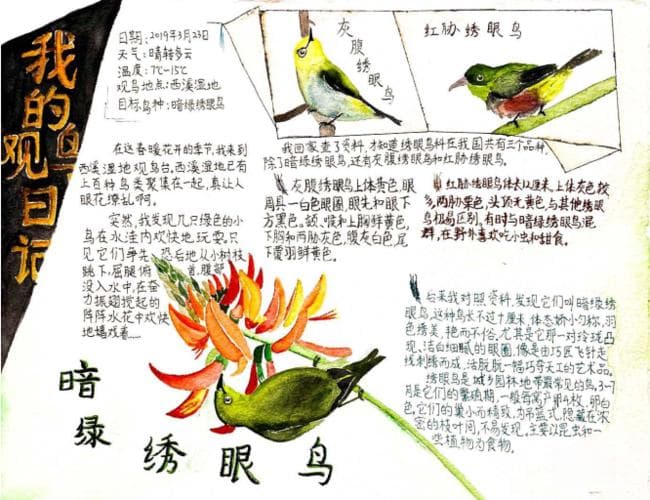 我的观鸟日记
日期:2019年3月23日
天气:晴转多云
温度:7℃-15℃
观鸟地点:西溪湿地
目标鸟种:暗绿绣眼鸟
灰腹绣眼鸟
红胁绣眼鸟
在这春暖花开的季节,我来到
西溪湿地观鸟台。西溪湿地已有
上百种鸟类聚集在一起,真让人
眼花缭乱啊。
突然,我发现几只绿色的小
鸟在水洼内欢快地玩耍。只
见它们争先恐后地从小树枝
跳下,屈腿俯首,腹部
没入水中,在奋
力振翅搅起的
阵阵水花中欢快
地嬉戏着……
我回家查了资料,才知道绣眼鸟科在我国共有三个品种,
除了暗绿绣眼鸟,还有灰腹绣眼鸟和红胁绣眼鸟。
灰腹绣眼鸟上体黄色,眼
周具一白色眼圈,眼先和眼下
方黑色。颏、喉和上胸鲜黄色,
下胸和两胁灰色,腹灰白色,尾
下覆羽鲜黄色。
红胁绣眼鸟体长12厘米,上体灰色较
多,两胁栗色,头顶无黄色,与其他绣眼
鸟极易区别,有时与暗绿绣眼鸟混
群,在野外喜欢吃小虫和甜食。
后来我对照资料,发现它们叫暗绿绣
眼鸟,这种鸟长不过十厘米,体态娇小匀称,羽
色绣美,艳而不俗,尤其是它那一对玲珑凸
现、洁白细腻的眼圈,像是由巧匠飞针走
线刺绣而成,活脱脱一幅巧夺天工的艺术品。
绣眼鸟是城乡园林地带最常见的鸟,3-7
月是它们的繁殖期,一般每窝产卵4枚,卵白
色,它们的巢小而精致,为吊篮式,隐藏在浓
密的枝叶间,不易发现。主要以昆虫和一
些植物为食物。
暗绿绣眼鸟